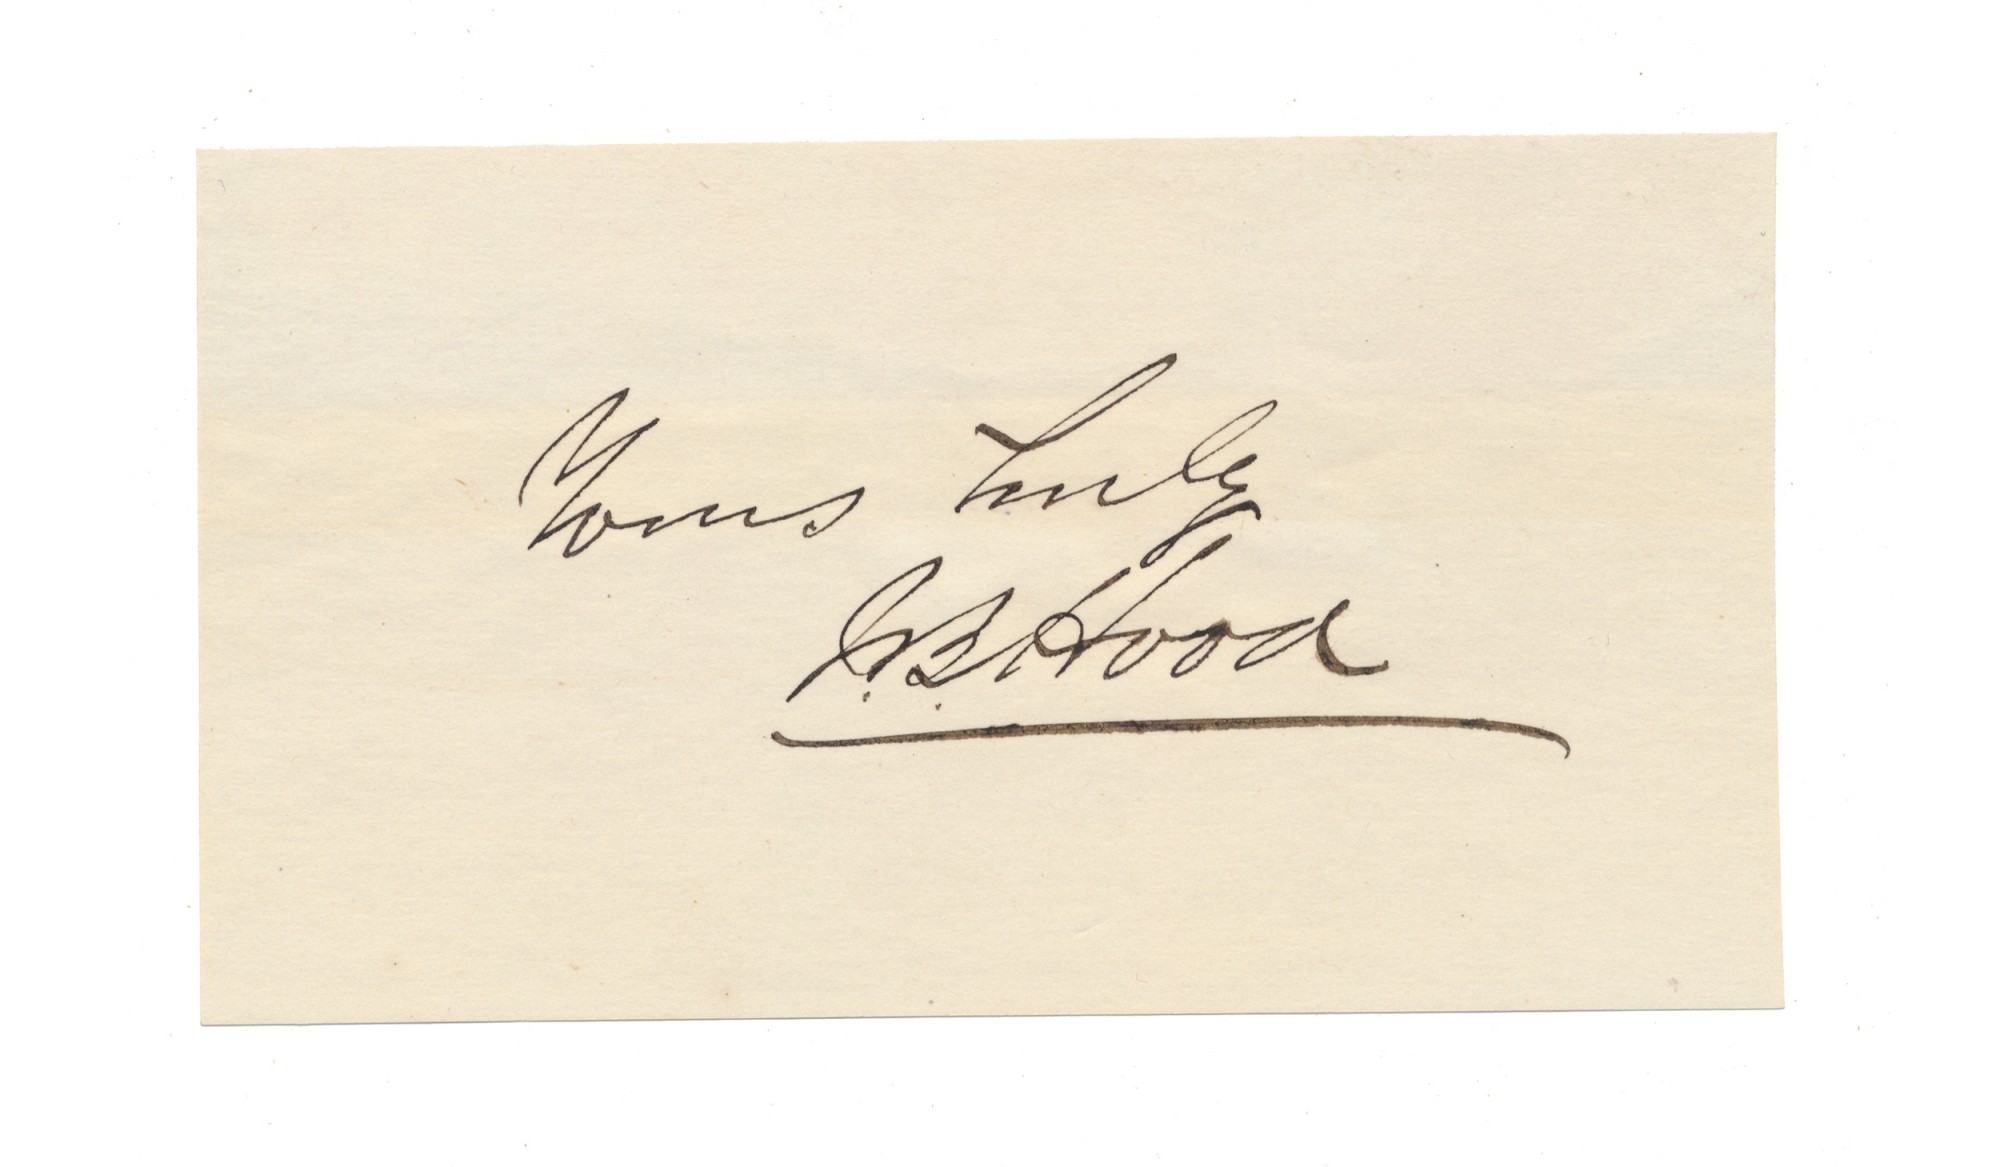 Yours Truly
J. B. Hood